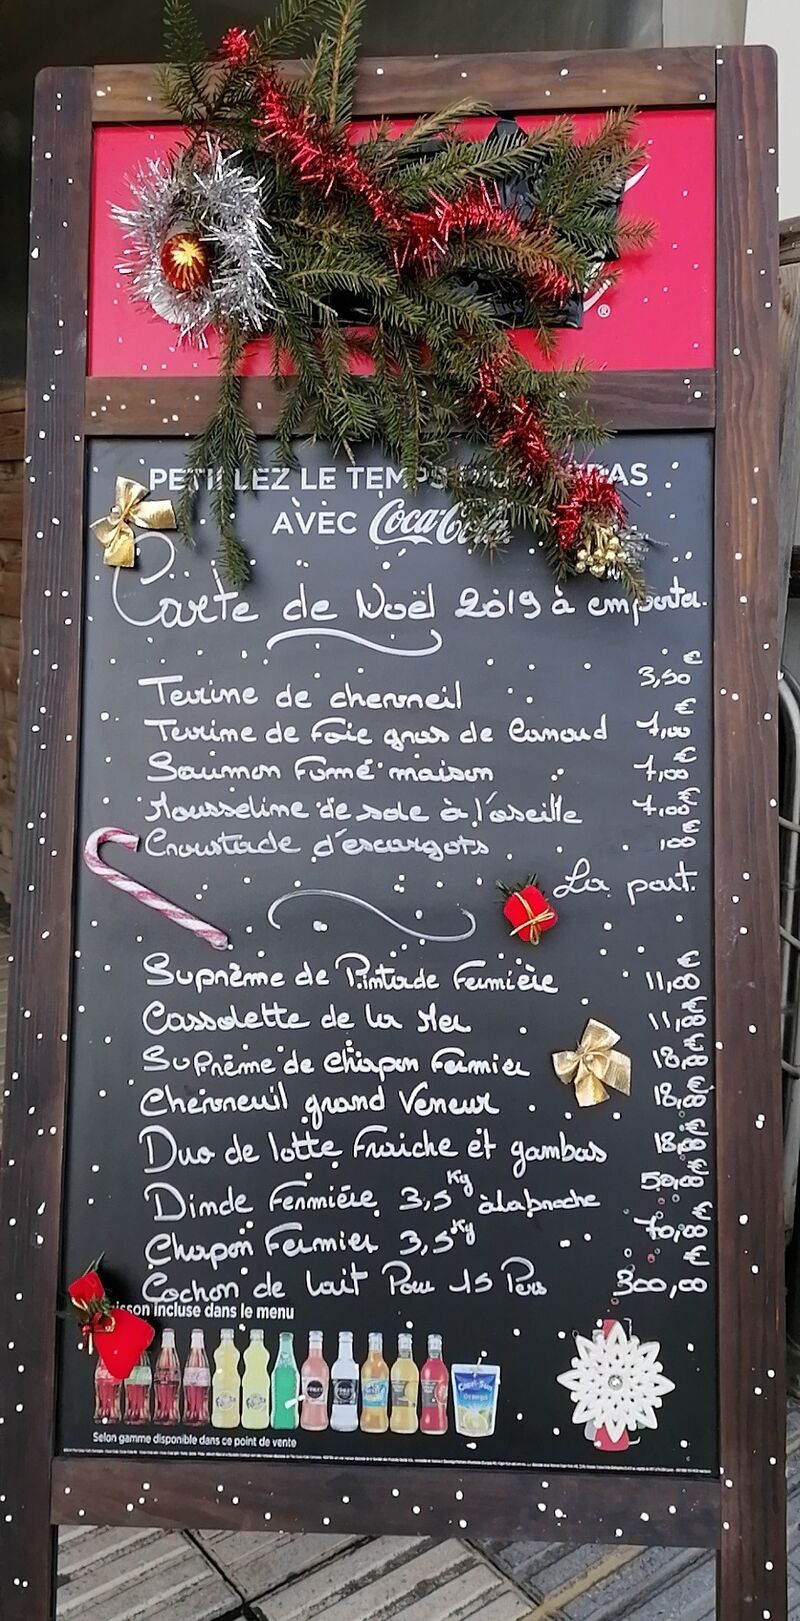 ®
PETILLEZ LE TEMPS
AVEC Coca-Cola
Carte de Noël 2019 à emporter.
Terrine de chevreuil 3,50€
Terrine de Foie gras de Canard 7,00€
Saumon Fumé maison 7,00€
Mousseline de sole à l'oseille 7,00€
Croustade d'escargots €
La part.
Suprème de Pintade Fermière 11,00€
Cassolette de la Mer 11,00€
Suprème de chapon Fermier 18,00€
Chevreuil grand Veneur 18,00€
Duo de lotte Fraiche et gambas 18,00€
Dinde Fermière 3,5 Kg à la broche 50,00€
Chapon Fermier 3,5 Kg 70,00€
Cochon de lait Pour 15 Pers 300,00€
incluse dans le menu
Selon gamme disponible dans ce point de vente